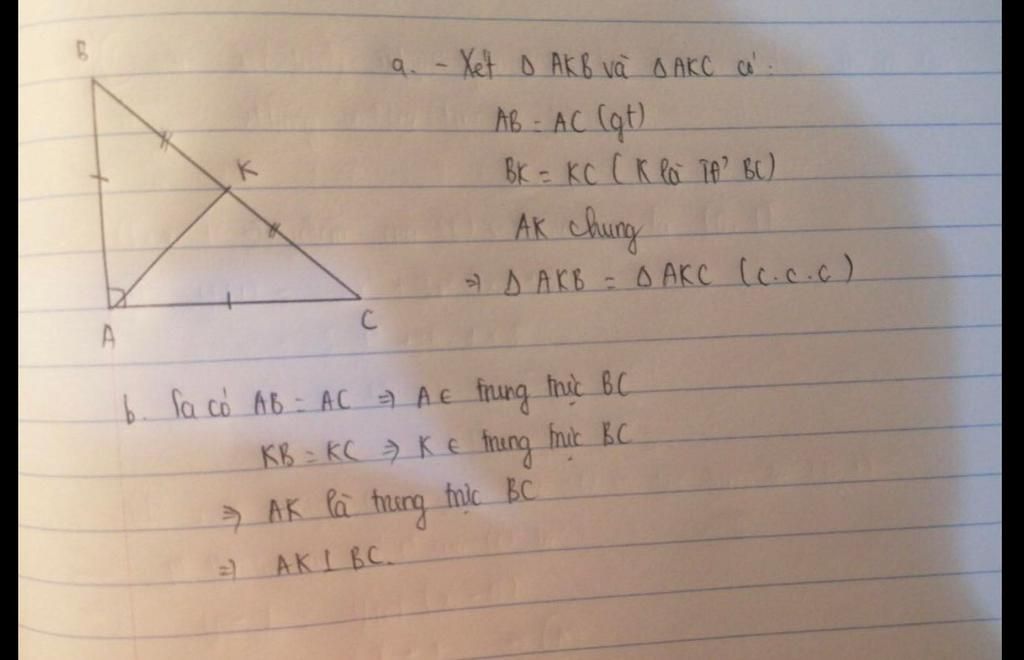 B
K
A
C
a. - Xét Δ AKB và Δ AKC có:
AB = AC (gt)
BK = KC ( K là TĐ BC)
AK chung
⇒ Δ AKB = Δ AKC (c.c.c)
b. Ta có AB = AC ⇒ A ∈ trung trực BC
KB = KC ⇒ K ∈ trung trực BC
⇒ AK là trung trực BC
⇒ AK ⊥ BC.